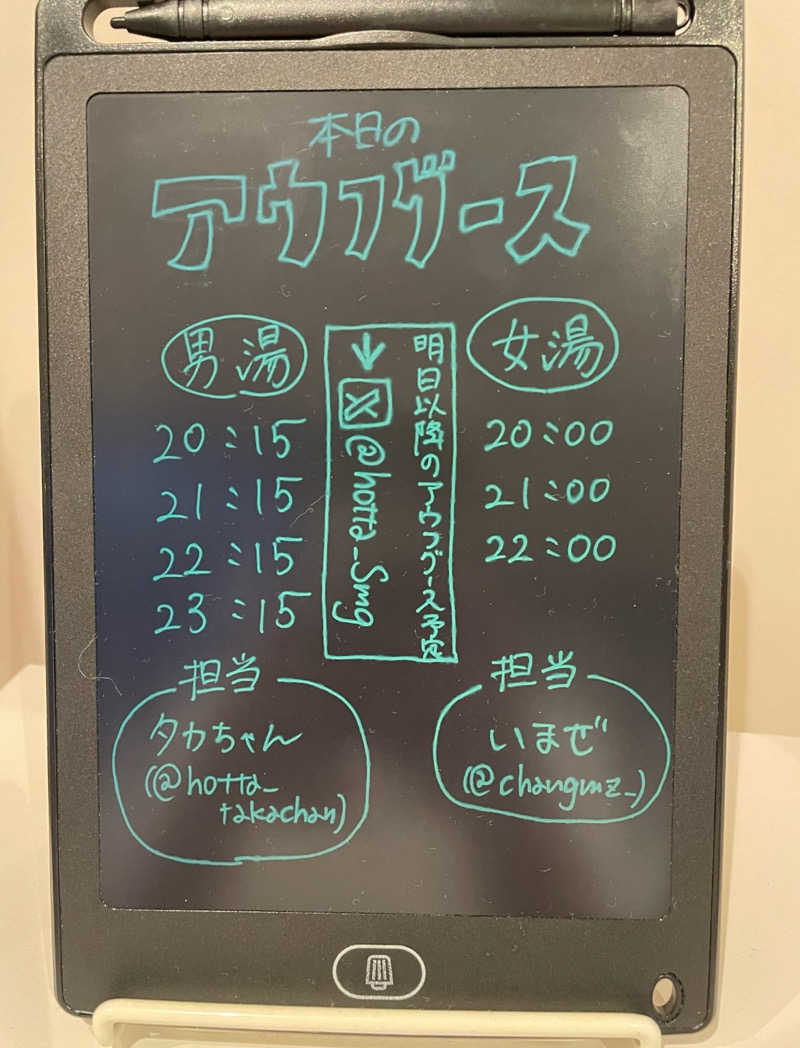 本日の
アウフグース
男湯
20:15
21:15
22:15
23:15
明日以降のアウフグース予定
↓
X @hotta_smg
女湯
20:00
21:00
22:00
担当
タカちゃん
(@hotta_
takachan)
担当
いまぜ
(@changmz_)